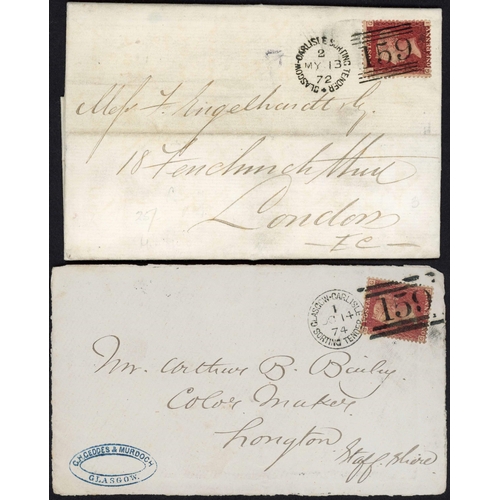 GLASGOW-CARLISLE SORTING TENDER
2
MY 13
72
159
Mess F. Engelhardt &
18 Fenchurch Street
London
E C
GLASGOW-CARLISLE SORTING TENDER
1
14
74
159
Mr. Arthur B. Bailey
Color Maker
Longton
Staff. Shire
C.H. GEDDES & MURDOCH
GLASGOW.